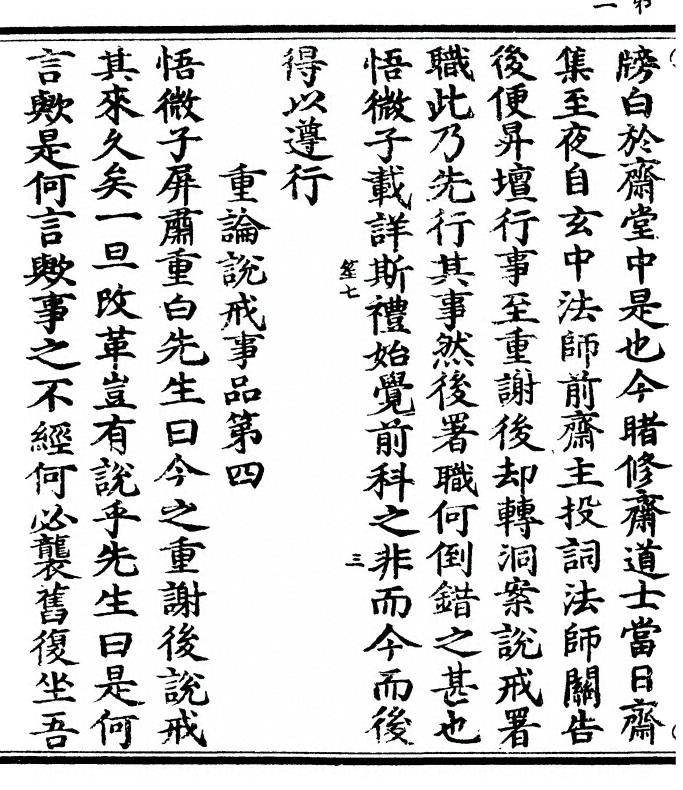 牓白於齋堂中是也今睹修齋道士當日齋
集至夜自玄中法師前齋主投詞法師關告
後便昇壇行事至重謝後却轉洞案説戒署
職此乃先行其事然後署職何倒錯之甚也
悟微子載詳斯禮始覺前科之非而今而後
笙七
三
得以遵行
重論説戒事品第四
悟微子屏肅重白先生曰今之重謝後説戒
其來久矣一旦改革豈有説乎先生曰是何
言歟是何言歟事之不經何必襲舊復坐吾